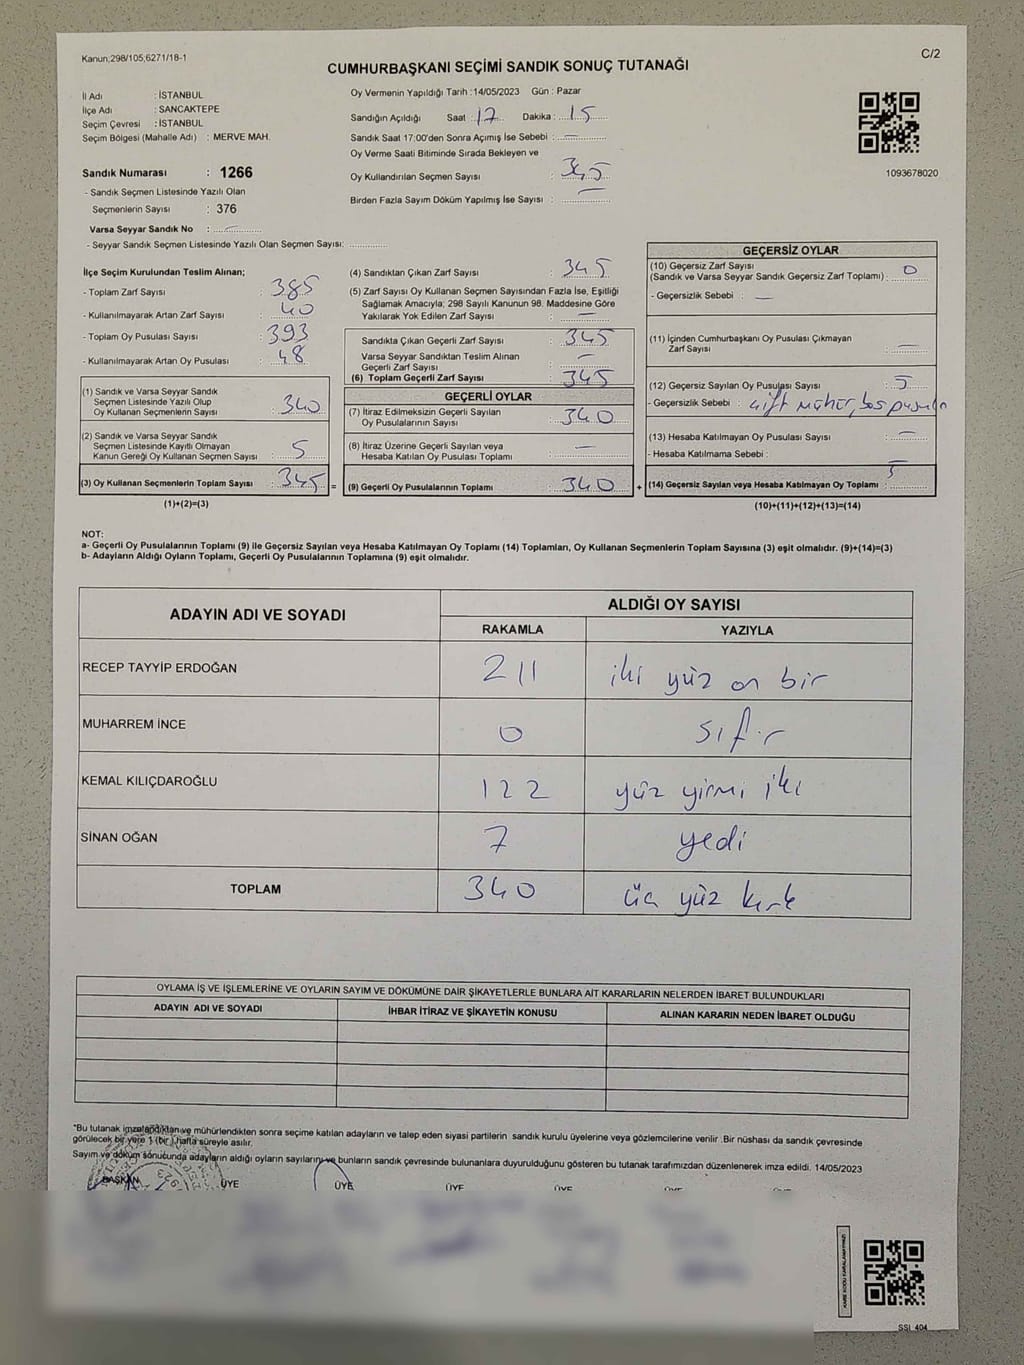 Kanun;298/105;6271/18-1
C/2
CUMHURBAŞKANI SEÇİMİ SANDIK SONUÇ TUTANAĞI
İl Adı : İSTANBUL
İlçe Adı : SANCAKTEPE
Seçim Çevresi : İSTANBUL
Seçim Bölgesi (Mahalle Adı) : MERVE MAH.
Oy Vermenin Yapıldığı Tarih :14/05/2023 Gün : Pazar
Sandığın Açıldığı Saat : 17 Dakika : 15
Sandık Saat 17:00'den Sonra Açımış İse Sebebi : —
Oy Verme Saati Bitiminde Sırada Bekleyen ve
Oy Kullandırılan Seçmen Sayısı : 345
Birden Fazla Sayım Döküm Yapılmış İse Sayısı : —
1093678020
Sandık Numarası : 1266
- Sandık Seçmen Listesinde Yazılı Olan
Seçmenlerin Sayısı : 376
Varsa Seyyar Sandık No : —
- Seyyar Sandık Seçmen Listesinde Yazılı Olan Seçmen Sayısı:
İlçe Seçim Kurulundan Teslim Alınan;
- Toplam Zarf Sayısı : 385
- Kullanılmayarak Artan Zarf Sayısı : 40
- Toplam Oy Pusulası Sayısı : 393
- Kullanılmayarak Artan Oy Pusulası : 48
(1) Sandık ve Varsa Seyyar Sandık
Seçmen Listesinde Yazılı Olup
Oy Kullanan Seçmenlerin Sayısı : 340
(2) Sandık ve Varsa Seyyar Sandık
Seçmen Listesinde Kayıtlı Olmayan
Kanun Gereği Oy Kullanan Seçmen Sayısı : 5
(3) Oy Kullanan Seçmenlerin Toplam Sayısı : 345 =
(1)+(2)=(3)
(4) Sandıktan Çıkan Zarf Sayısı : 345
(5) Zarf Sayısı Oy Kullanan Seçmen Sayısından Fazla İse, Eşitliği
Sağlamak Amacıyla; 298 Sayılı Kanunun 98. Maddesine Göre
Yakılarak Yok Edilen Zarf Sayısı : —
Sandıkta Çıkan Geçerli Zarf Sayısı : 345
Varsa Seyyar Sandıktan Teslim Alınan
Geçerli Zarf Sayısı : —
(6) Toplam Geçerli Zarf Sayısı : 345
GEÇERLİ OYLAR
(7) İtiraz Edilmeksizin Geçerli Sayılan
Oy Pusulalarının Sayısı : 340
(8) İtiraz Üzerine Geçerli Sayılan veya
Hesaba Katılan Oy Pusulası Toplamı : —
(9) Geçerli Oy Pusulalarının Toplamı : 340 +
GEÇERSİZ OYLAR
(10) Geçersiz Zarf Sayısı
(Sandık ve Varsa Seyyar Sandık Geçersiz Zarf Toplamı) : 0
- Geçersizlik Sebebi : —
(11) İçinden Cumhurbaşkanı Oy Pusulası Çıkmayan
Zarf Sayısı : —
(12) Geçersiz Sayılan Oy Pusulası Sayısı : 5
- Geçersizlik Sebebi : çift mühür, boş pusula
(13) Hesaba Katılmayan Oy Pusulası Sayısı : —
- Hesaba Katılmama Sebebi :
(14) Geçersiz Sayılan veya Hesaba Katılmayan Oy Toplamı : 5
(10)+(11)+(12)+(13)=(14)
NOT:
a- Geçerli Oy Pusulalarının Toplamı (9) ile Geçersiz Sayılan veya Hesaba Katılmayan Oy Toplamı (14) Toplamları, Oy Kullanan Seçmenlerin Toplam Sayısına (3) eşit olmalıdır. (9)+(14)=(3)
b- Adayların Aldığı Oyların Toplamı, Geçerli Oy Pusulalarının Toplamına (9) eşit olmalıdır.
ADAYIN ADI VE SOYADI ALDIĞI OY SAYISI
RAKAMLA YAZIYLA
RECEP TAYYİP ERDOĞAN 211 iki yüz on bir
MUHARREM İNCE 0 sıfır
KEMAL KILIÇDAROĞLU 122 yüz yirmi iki
SİNAN OĞAN 7 yedi
TOPLAM 340 üç yüz kırk
OYLAMA İŞ VE İŞLEMLERİNE VE OYLARIN SAYIM VE DÖKÜMÜNE DAİR ŞİKAYETLERLE BUNLARA AİT KARARLARIN NELERDEN İBARET BULUNDUKLARI
ADAYIN ADI VE SOYADI İHBAR İTİRAZ VE ŞİKAYETİN KONUSU ALINAN KARARIN NEDEN İBARET OLDUĞU
*Bu tutanak imzalandıktan ve mühürlendikten sonra seçime katılan adayların ve talep eden siyasi partilerin sandık kurulu üyelerine veya gözlemcilerine verilir .Bir nüshası da sandık çevresinde
görülecek bir yere 1 (bir ) hafta süreyle asılır.
Sayım ve döküm sonucunda adayların aldığı oyların sayılarını ve bunların sandık çevresinde bulunanlara duyurulduğunu gösteren bu tutanak tarafımızdan düzenlenerek imza edildi. 14/05/2023
BAŞKAN ÜYE ÜYE ÜYE ÜYE ÜYE ÜYE
KARE KODU KARALAMAYINIZ!
SSİ_404